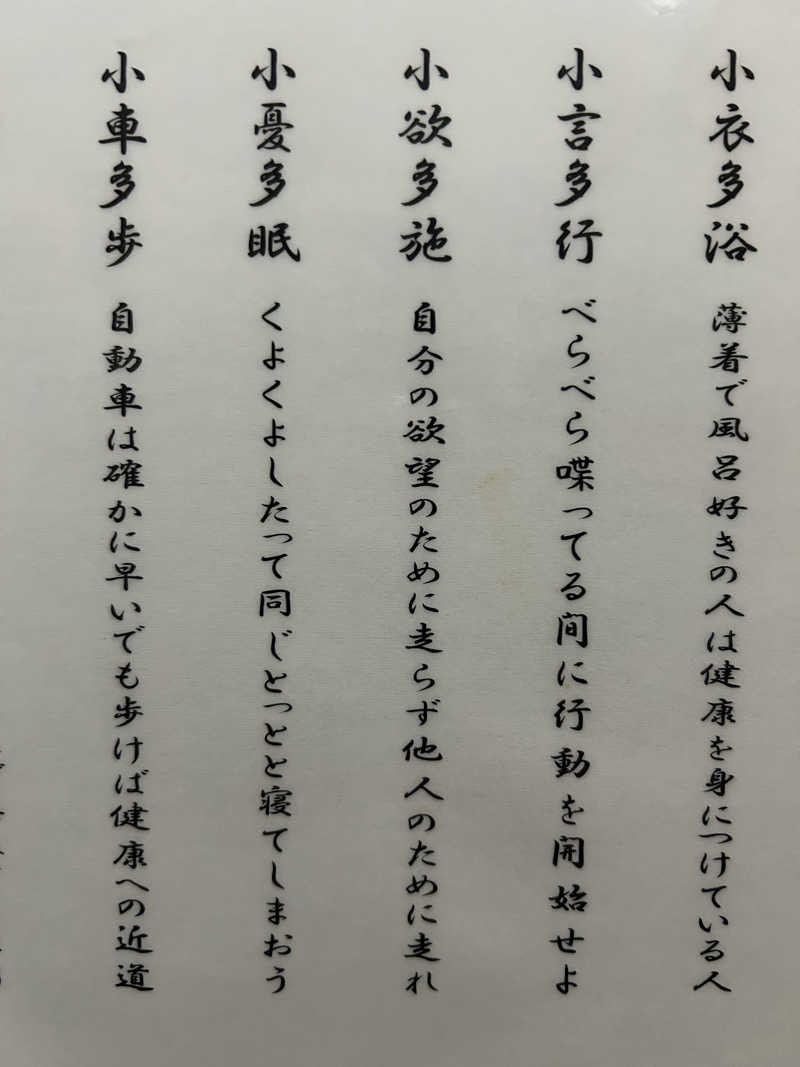 小衣多浴 薄着で風呂好きの人は健康を身につけている人
小言多行 べらべら喋ってる間に行動を開始せよ
小欲多施 自分の欲望のために走らず他人のために走れ
小憂多眠 くよくよしたって同じとっとと寝てしまおう
小車多歩 自動車は確かに早いでも歩けば健康への近道